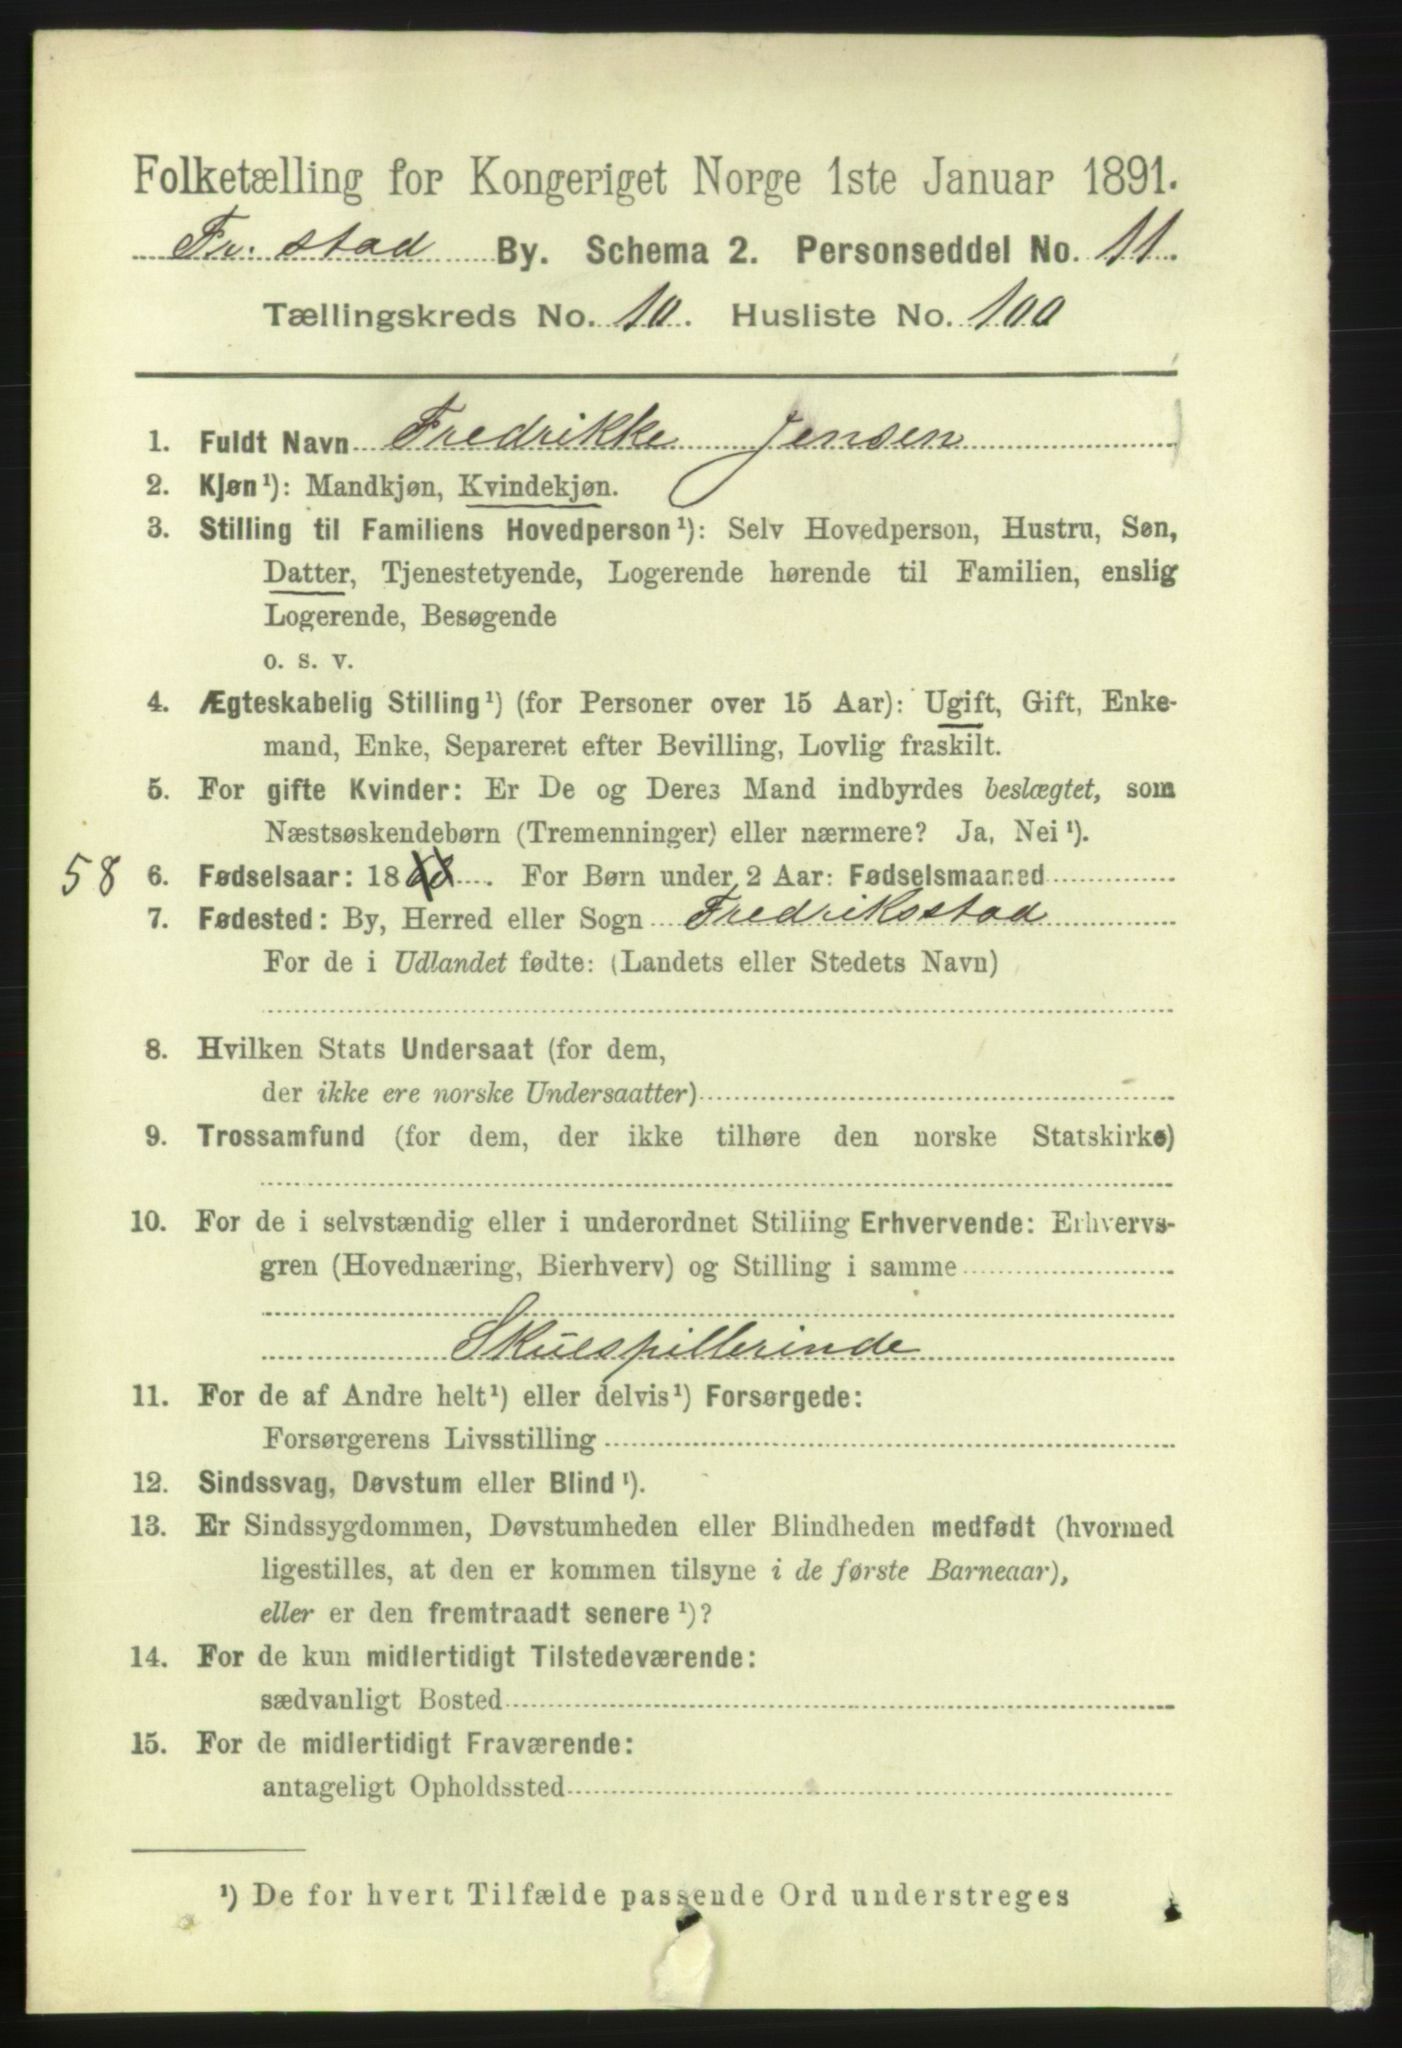 Folketælling for Kongeriget Norge 1ste Januar 1891.
Fr. stad By. Schema 2. Personseddel No. 11.
Tællingskreds No. 10. Husliste No. 100
1. Fuldt Navn Fredrikke Jensen
2. Kjøn¹): Mandkjøn, Kvindekjøn.
3. Stilling til Familiens Hovedperson¹): Selv Hovedperson, Hustru, Søn,
Datter, Tjenestetyende, Logerende hørende til Familien, enslig
Logerende, Besøgende
o. s. v.
4. Ægteskabelig Stilling¹) (for Personer over 15 Aar): Ugift, Gift, Enke-
mand, Enke, Separeret efter Bevilling, Lovlig fraskilt.
5. For gifte Kvinder: Er De og Deres Mand indbyrdes beslægtet, som
Næstsøskendebørn (Tremenninger) eller nærmere? Ja, Nei¹).
58 6. Fødselsaar: 18 . For Børn under 2 Aar: Fødselsmaaned
7. Fødested: By, Herred eller Sogn Fredriksstad
For de i Udlandet fødte: (Landets eller Stedets Navn)
8. Hvilken Stats Undersaat (for dem,
der ikke ere norske Undersaatter)
9. Trossamfund (for dem, der ikke tilhøre den norske Statskirke)
10. For de i selvstændig eller i underordnet Stilling Erhvervende: Erhvervs-
gren (Hovednæring, Bierhverv) og Stilling i samme
Skuespillerinde
11. For de af Andre helt¹) eller delvis¹) Forsørgede:
Forsørgerens Livsstilling
12. Sindssvag, Døvstum eller Blind¹).
13. Er Sindssygdommen, Døvstumheden eller Blindheden medfødt (hvormed
ligestilles, at den er kommen tilsyne i de første Barneaar),
eller er den fremtraadt senere¹)?
14. For de kun midlertidigt Tilstedeværende:
sædvanligt Bosted
15. For de midlertidigt Fraværende:
antageligt Opholdssted
¹) De for hvert Tilfælde passende Ord understreges